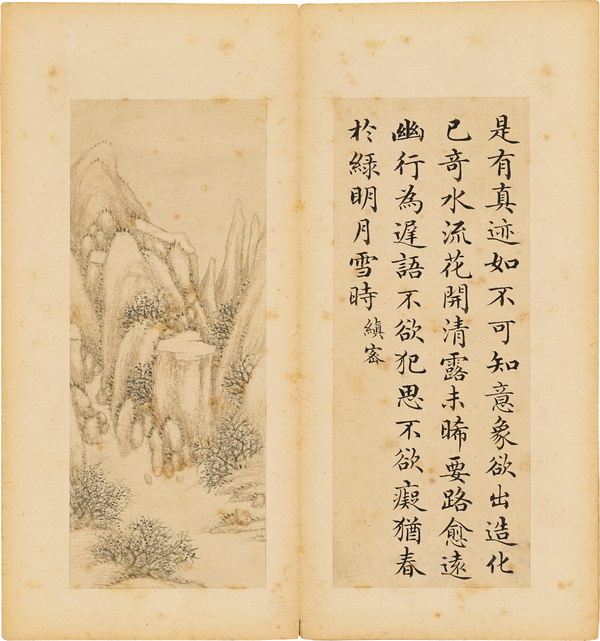 是有真迹如不可知意象欲出造化
已奇水流花開清露未晞要路愈遠
幽行為遲語不欲犯思不欲癡猶春
於綠明月雪時縝密